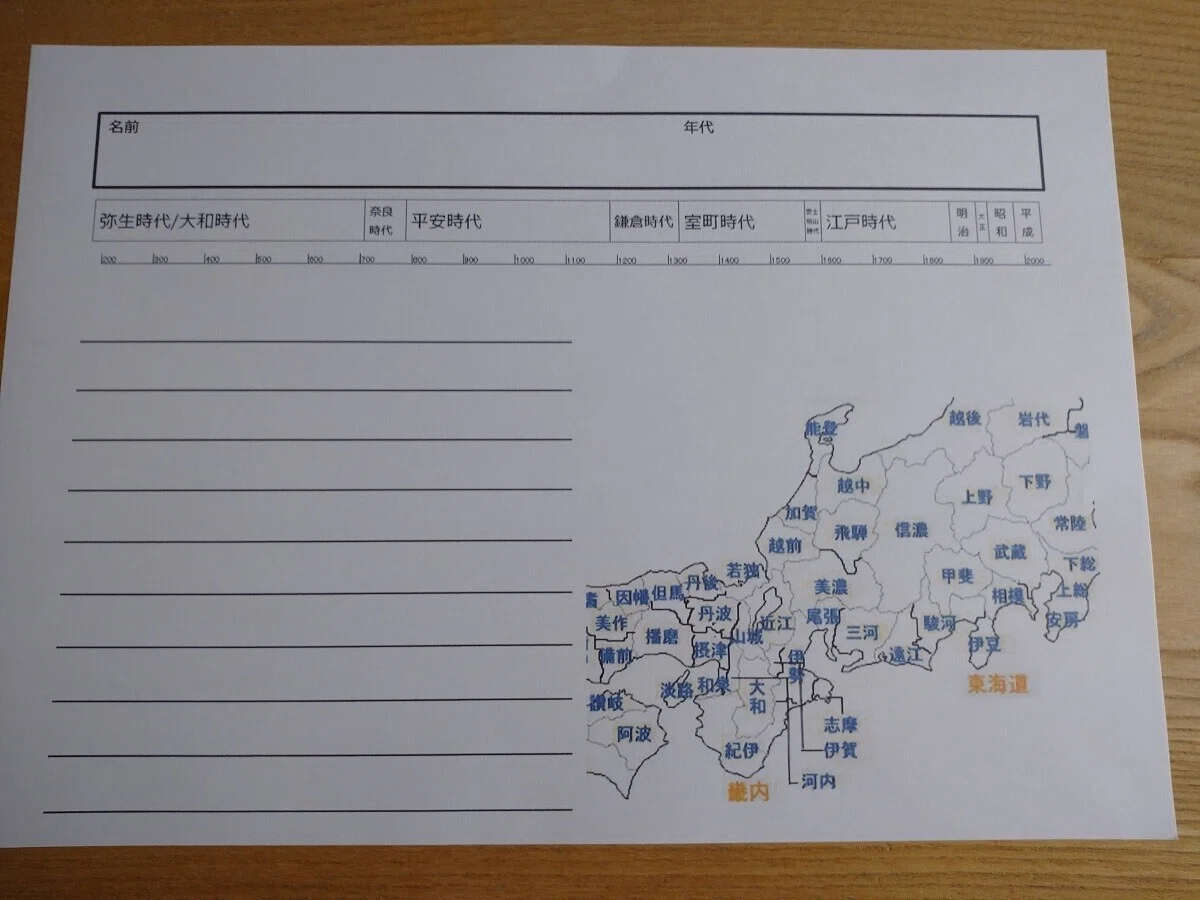 名前 年代
弥生時代/大和時代 奈良時代 平安時代 鎌倉時代 室町時代 安土桃山時代 江戸時代 明治 大正 昭和 平成
200 300 400 500 600 700 800 900 1000 1100 1200 1300 1400 1500 1600 1700 1800 1900 2000
能登 越後 岩代 磐
越中 上野 下野
加賀 飛騨 信濃 常陸
越前 武蔵 下総
若狭 丹後 但馬 因幡 美濃 甲斐 相模 上総
美作 丹波 近江 尾張 駿河 安房
播磨 山城 三河 伊豆
備前 摂津 伊勢 遠江
讃岐 淡路 和泉 大和 東海道
阿波 紀伊 志摩
伊賀
畿内 河内